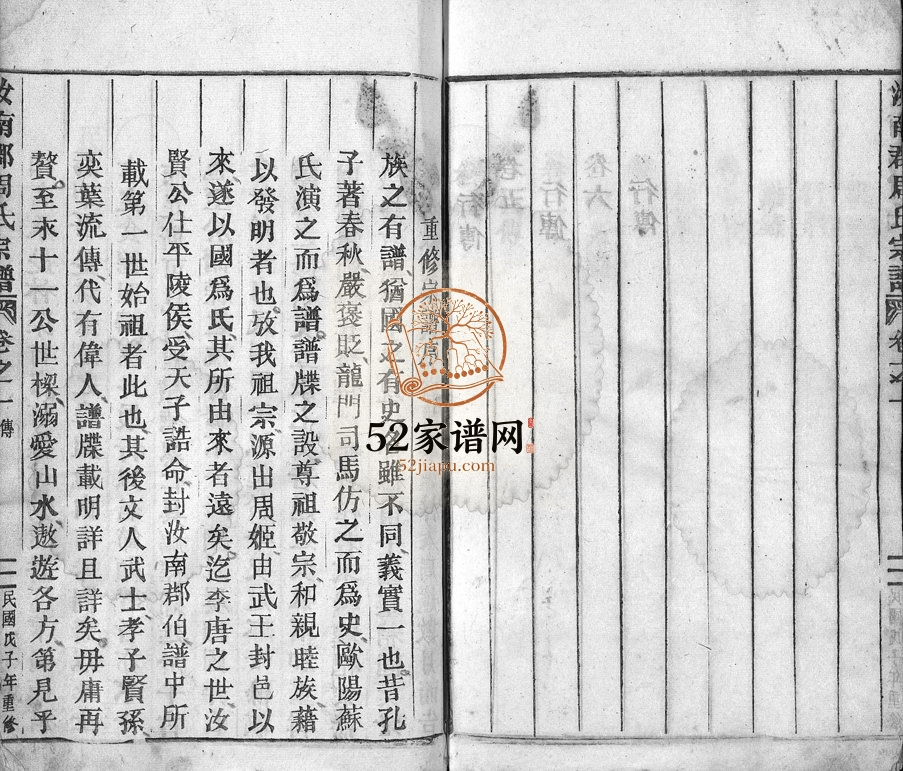 汝南郡周氏宗譜
卷之一
民國戊子年重修
重修宗譜
族之有譜、猶國之有史、雖不同、義實一也、昔孔
子著春秋、嚴褒貶、龍門司馬仿之而爲史、歐陽蘇
氏演之而爲譜、譜牒之設、尊祖敬宗、和親睦族、藉
以發明者也、攷我祖宗源出周姬、由武王封邑、以
來、遂以國爲氏、其所由來者遠矣、迄李唐之世、汝
賢公仕平陵侯、受天子誥命、封汝南郡伯、譜中所
載第一世始祖者此也、其後文人武士、孝子賢孫
奕葉流傳、代有偉人、譜牒載明詳且詳矣、毋庸再
贅。至末十一公世樑、溺愛山水、遨遊各方、第見乎
汝南郡周氏宗譜
卷之一 傳
民國戊子年重修
52家谱网
52jiapu.com